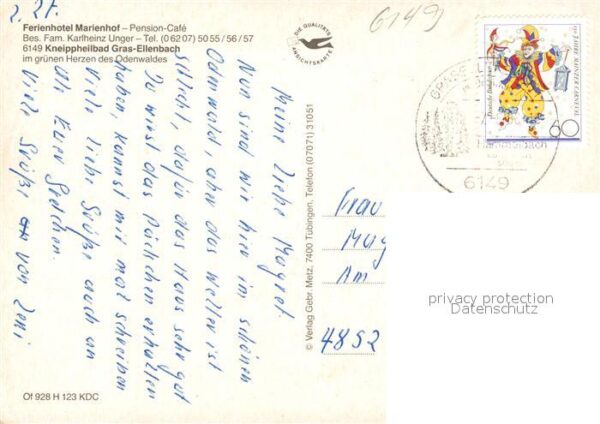 z. Zt.
Ferienhotel Marienhof – Pension-Café
Bes. Fam. Karlheinz Unger – Tel. (0 62 07) 50 55 / 56 / 57
6149 Kneippheilbad Gras-Ellenbach
im grünen Herzen des Odenwaldes
DIE QUALITÄTS ANSICHTSKARTE
6149
Meine liebe Margret
Nun sind wir hier im schönen
Odenwald aber das Wetter ist
schlecht, dafür das Haus sehr gut
Du wirst das Päckchen erhalten
haben, kannst mir mal schreiben
Viele liebe Grüße auch an
die Kur
Viele Grüße von Leni
Of 928 H 123 KDC
© Verlag Gebr. Metz, 7400 Tübingen, Telefon (07071) 31051
150 JAHRE MAINZER CARNEVAL
Deutsche Bundespost
60
6149
Frau
Mag
Am
4852
privacy protection
Datenschutz